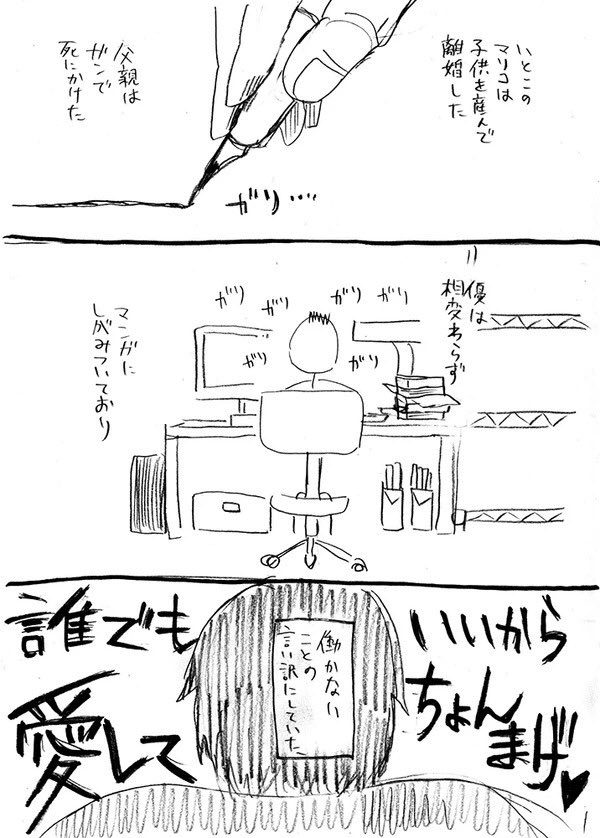 いとこの
マリコは
子供を産んで
離婚した
父親は
ガンで
死にかけた
ガリ…
優は
相変わらず
ガリ
ガリ
ガリ
ガリ
ガリ
ガリ
マンガに
しがみついており
働かない
ことの
言い訳にしていた。
誰でも
いいから
愛して
ちょん
まげ♥